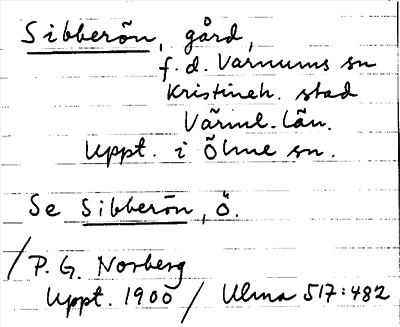 Sibberön, gård,
f.d. Varnums sn
Kristineh. stad
Värml. län.
Uppt. i Ölme sn.
Se Sibberön, ö.
/P. G. Norberg
Uppt. 1900 / Ulma 517:482